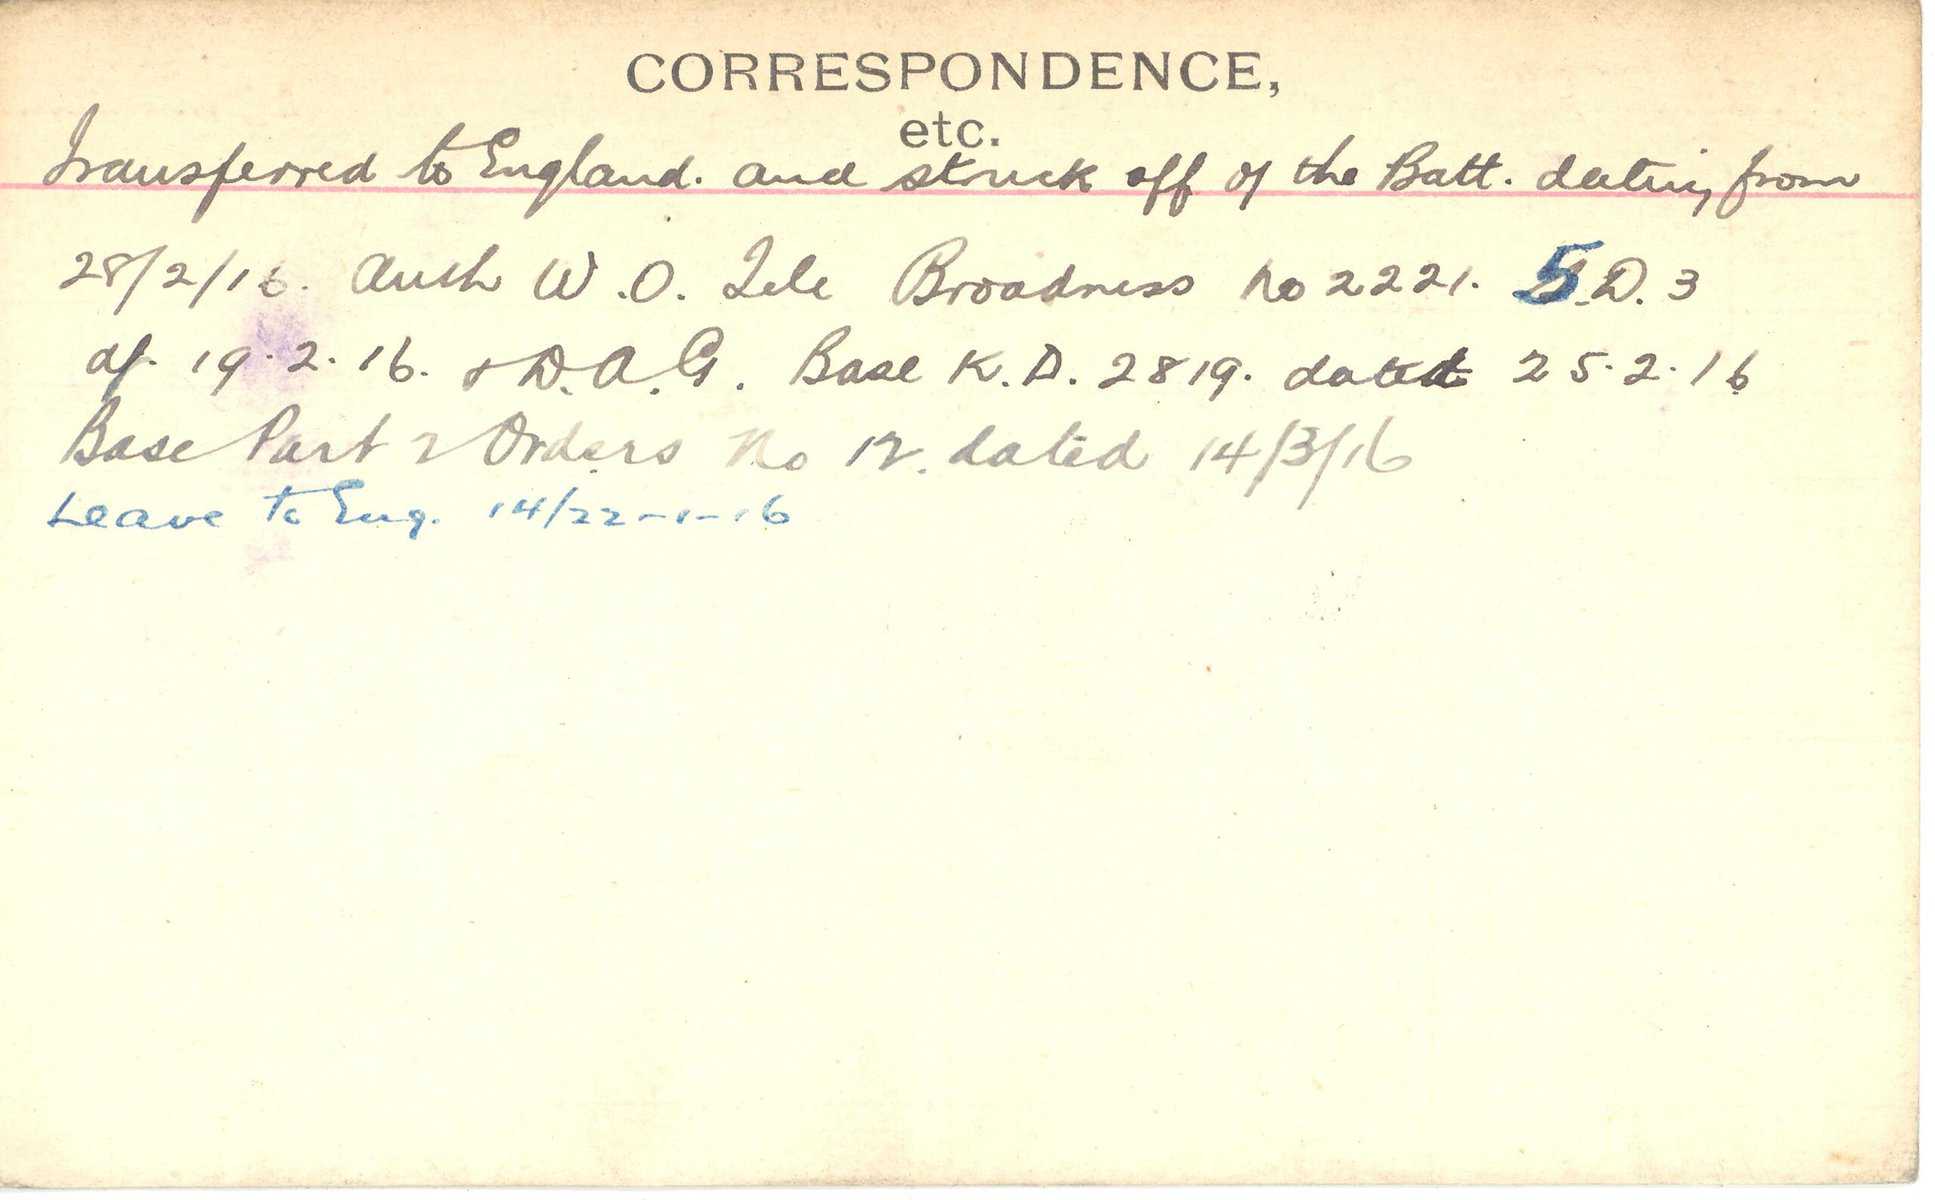 CORRESPONDENCE,
etc.
Transferred to England. and struck off of the Batt. dating from
28/2/16. Auth W.O. Tele Broadness No 2221. S.D. 3
of 19.2.16. & D.A.G. Base K.D. 2819. dated 25.2.16
Base Part 2 Orders No 12. dated 14/3/16
Leave to Eng. 14/22-1-16